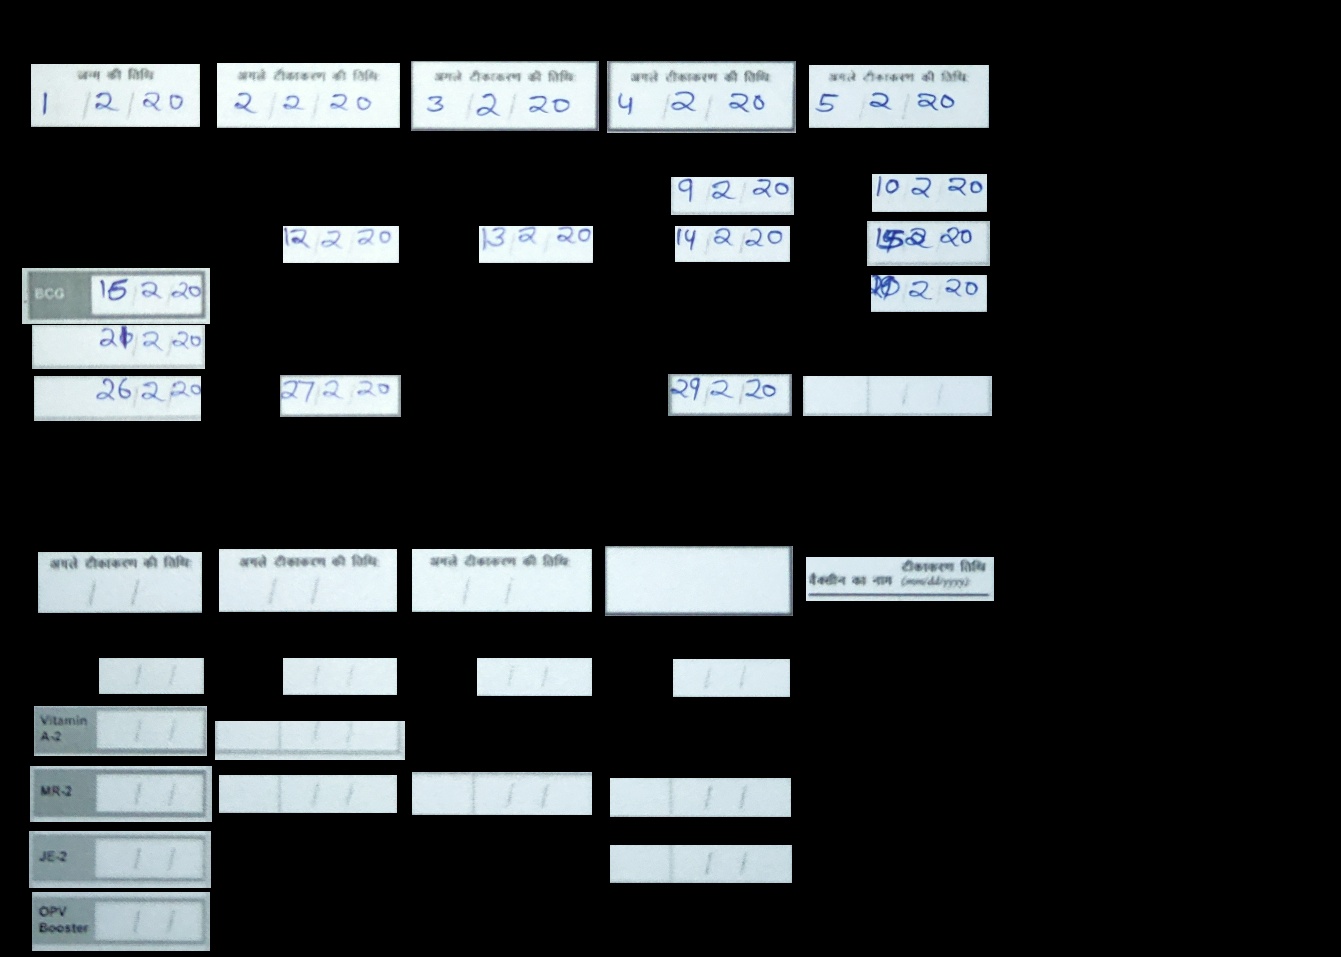 जन्म की तिथि
1 / 2 / 20
अगले टीकाकरण की तिथि:
2 / 2 / 20
अगले टीकाकरण की तिथि:
3 / 2 / 20
अगले टीकाकरण की तिथि:
4 / 2 / 20
अगले टीकाकरण की तिथि:
5 / 2 / 20
9 / 2 / 20
10 / 2 / 20
12 / 2 / 20
13 / 2 / 20
14 / 2 / 20
2 20
BCG 15 / 2 / 20
/ 2 / 20
21 / 2 / 20
26 / 2 / 20
27 / 2 / 20
29 / 2 / 20
/ /
अगले टीकाकरण की तिथि:
/ /
अगले टीकाकरण की तिथि:
/ /
अगले टीकाकरण की तिथि:
/ /
टीकाकरण तिथि
वैक्सीन का नाम (mm/dd/yyyy):
/ /
/ /
/ /
/ /
Vitamin
A-2 / /
/ /
MR-2 / /
/ /
/ /
/ /
JE-2 / /
/ /
OPV
Booster / /